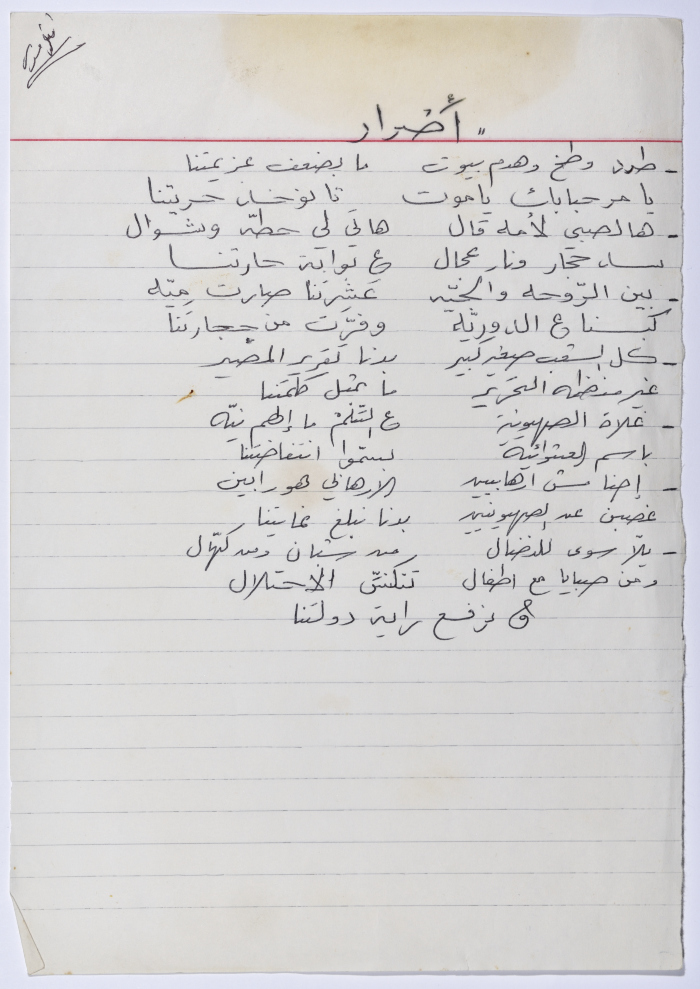 أضرار "
- طرد وطخ وهدم بيوت ما بضعف عزيمتنا
يا مرحبابك ياموت تا نوخذ حريتنا
- هالصبي لأمه قال هاتي لي حطّه وشوال
حجار ونار عجال ع بوابة حارتنا
- بين الرّوحه والجيّه عَشِرَتنا صارت ميّه
كمنا ع الدوريّة وفرّت من حجارتنا
- كل الشعب صغير كبير بدنا تقرير المصير
غير منظمة التحرير ما بمثل كلمتنا
- غلاة الصهيونية ع التفلّم ما إلهم نيّه
باسم العشوائية بسمّوا انتفاضتنا
- إحنا مش ارهابيين الارهابي هو رابين
غصبن عن الصهيونيين بدنا نبلغ غايتنا
- يلّا سوى للنضال من شبان ومن كهّال
ومن صبايا مع اطفال تنكنّس الاحتلال
نرفع راية دولتنا